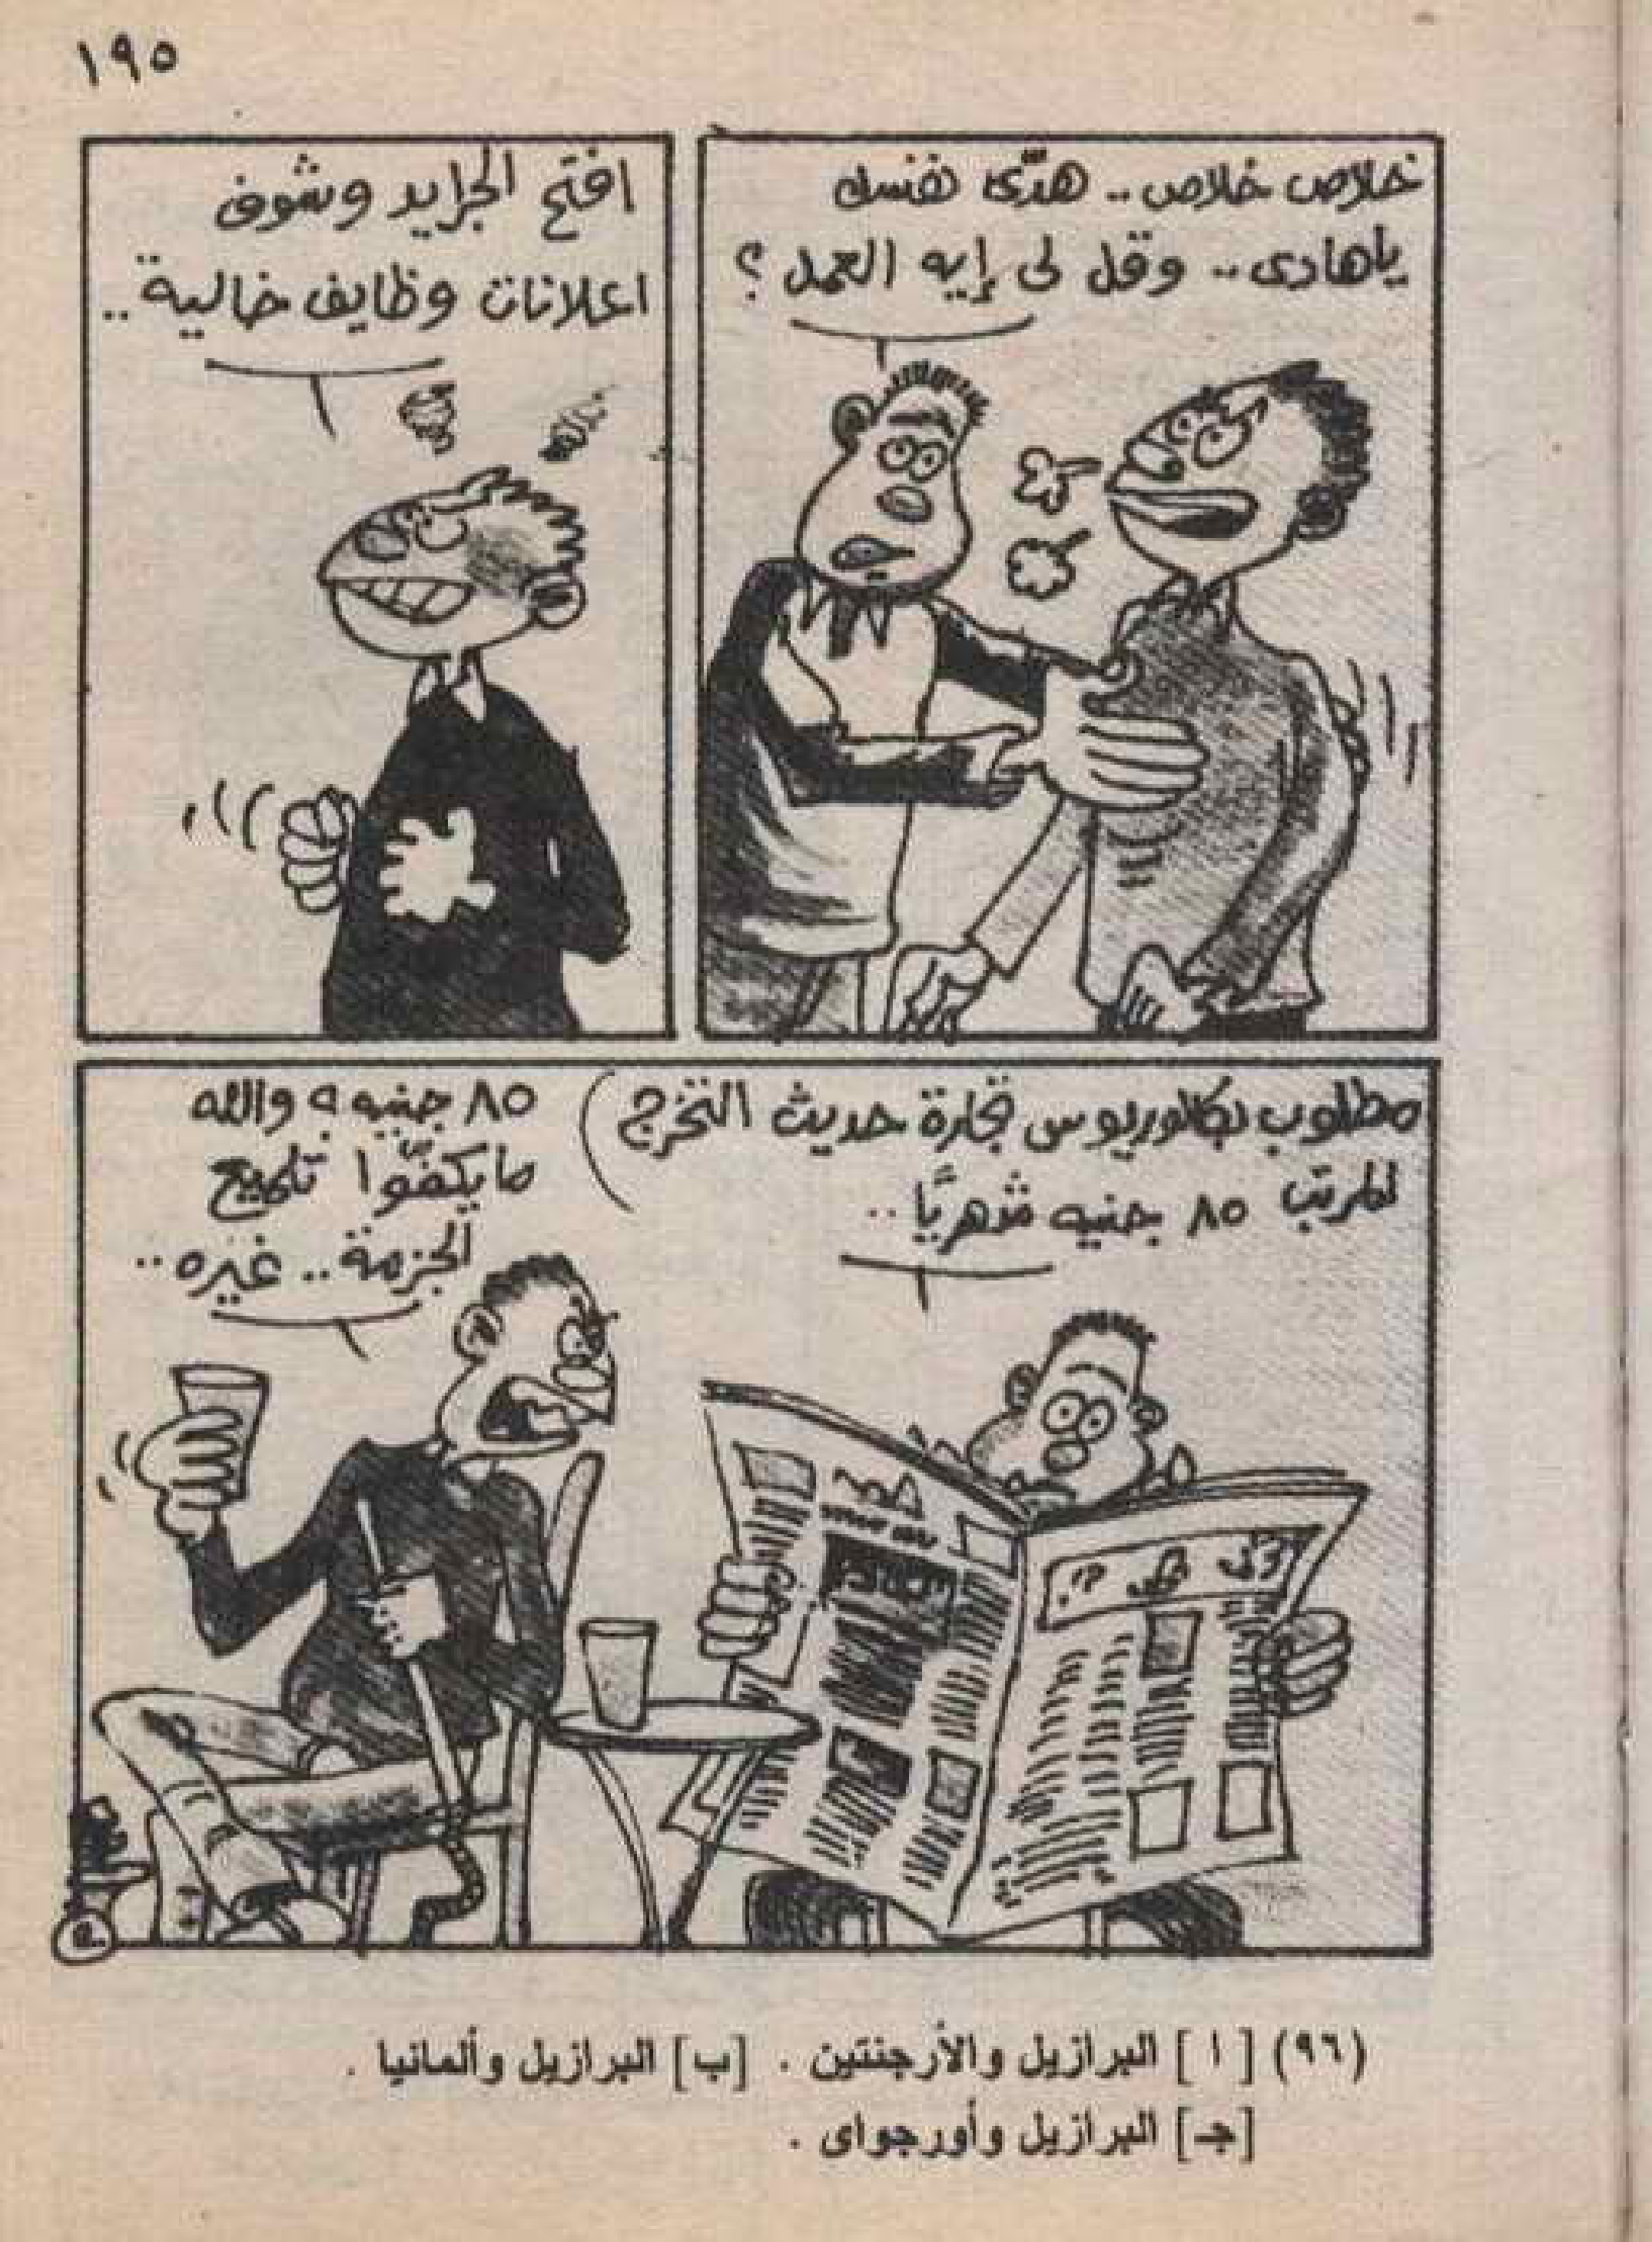 ١٩٥
خلاص خلاص .. هدّى نفسك
ياهادى .. وقل لى إيه العمل ؟
افتح الجرايد وشوف
اعلانات وظايف خالية ..
مطلوب بكالوريوس تجارة حديث التخرج
المرتب ٨٥ جنيه شهريًا ..
٨٥ جنيه ؟ والله
مايكفّوا تلميع
الجزمة .. غيره ..
(٩٦) [ ا ] البرازيل والأرجنتين . [ب] البرازيل وألمانيا .
[جـ] البرازيل وأورجواى .